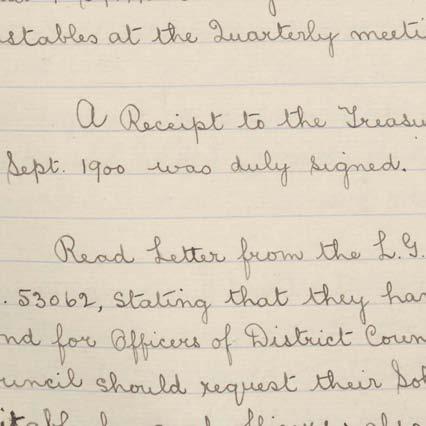 stables at the Quarterly meeti
A Receipt to the Treasu
Sept. 1900 was duly signed.
Read Letter from the L.G.
. 53062, stating that they ha
nd for Officers of District Coun
uncil should request their Sol